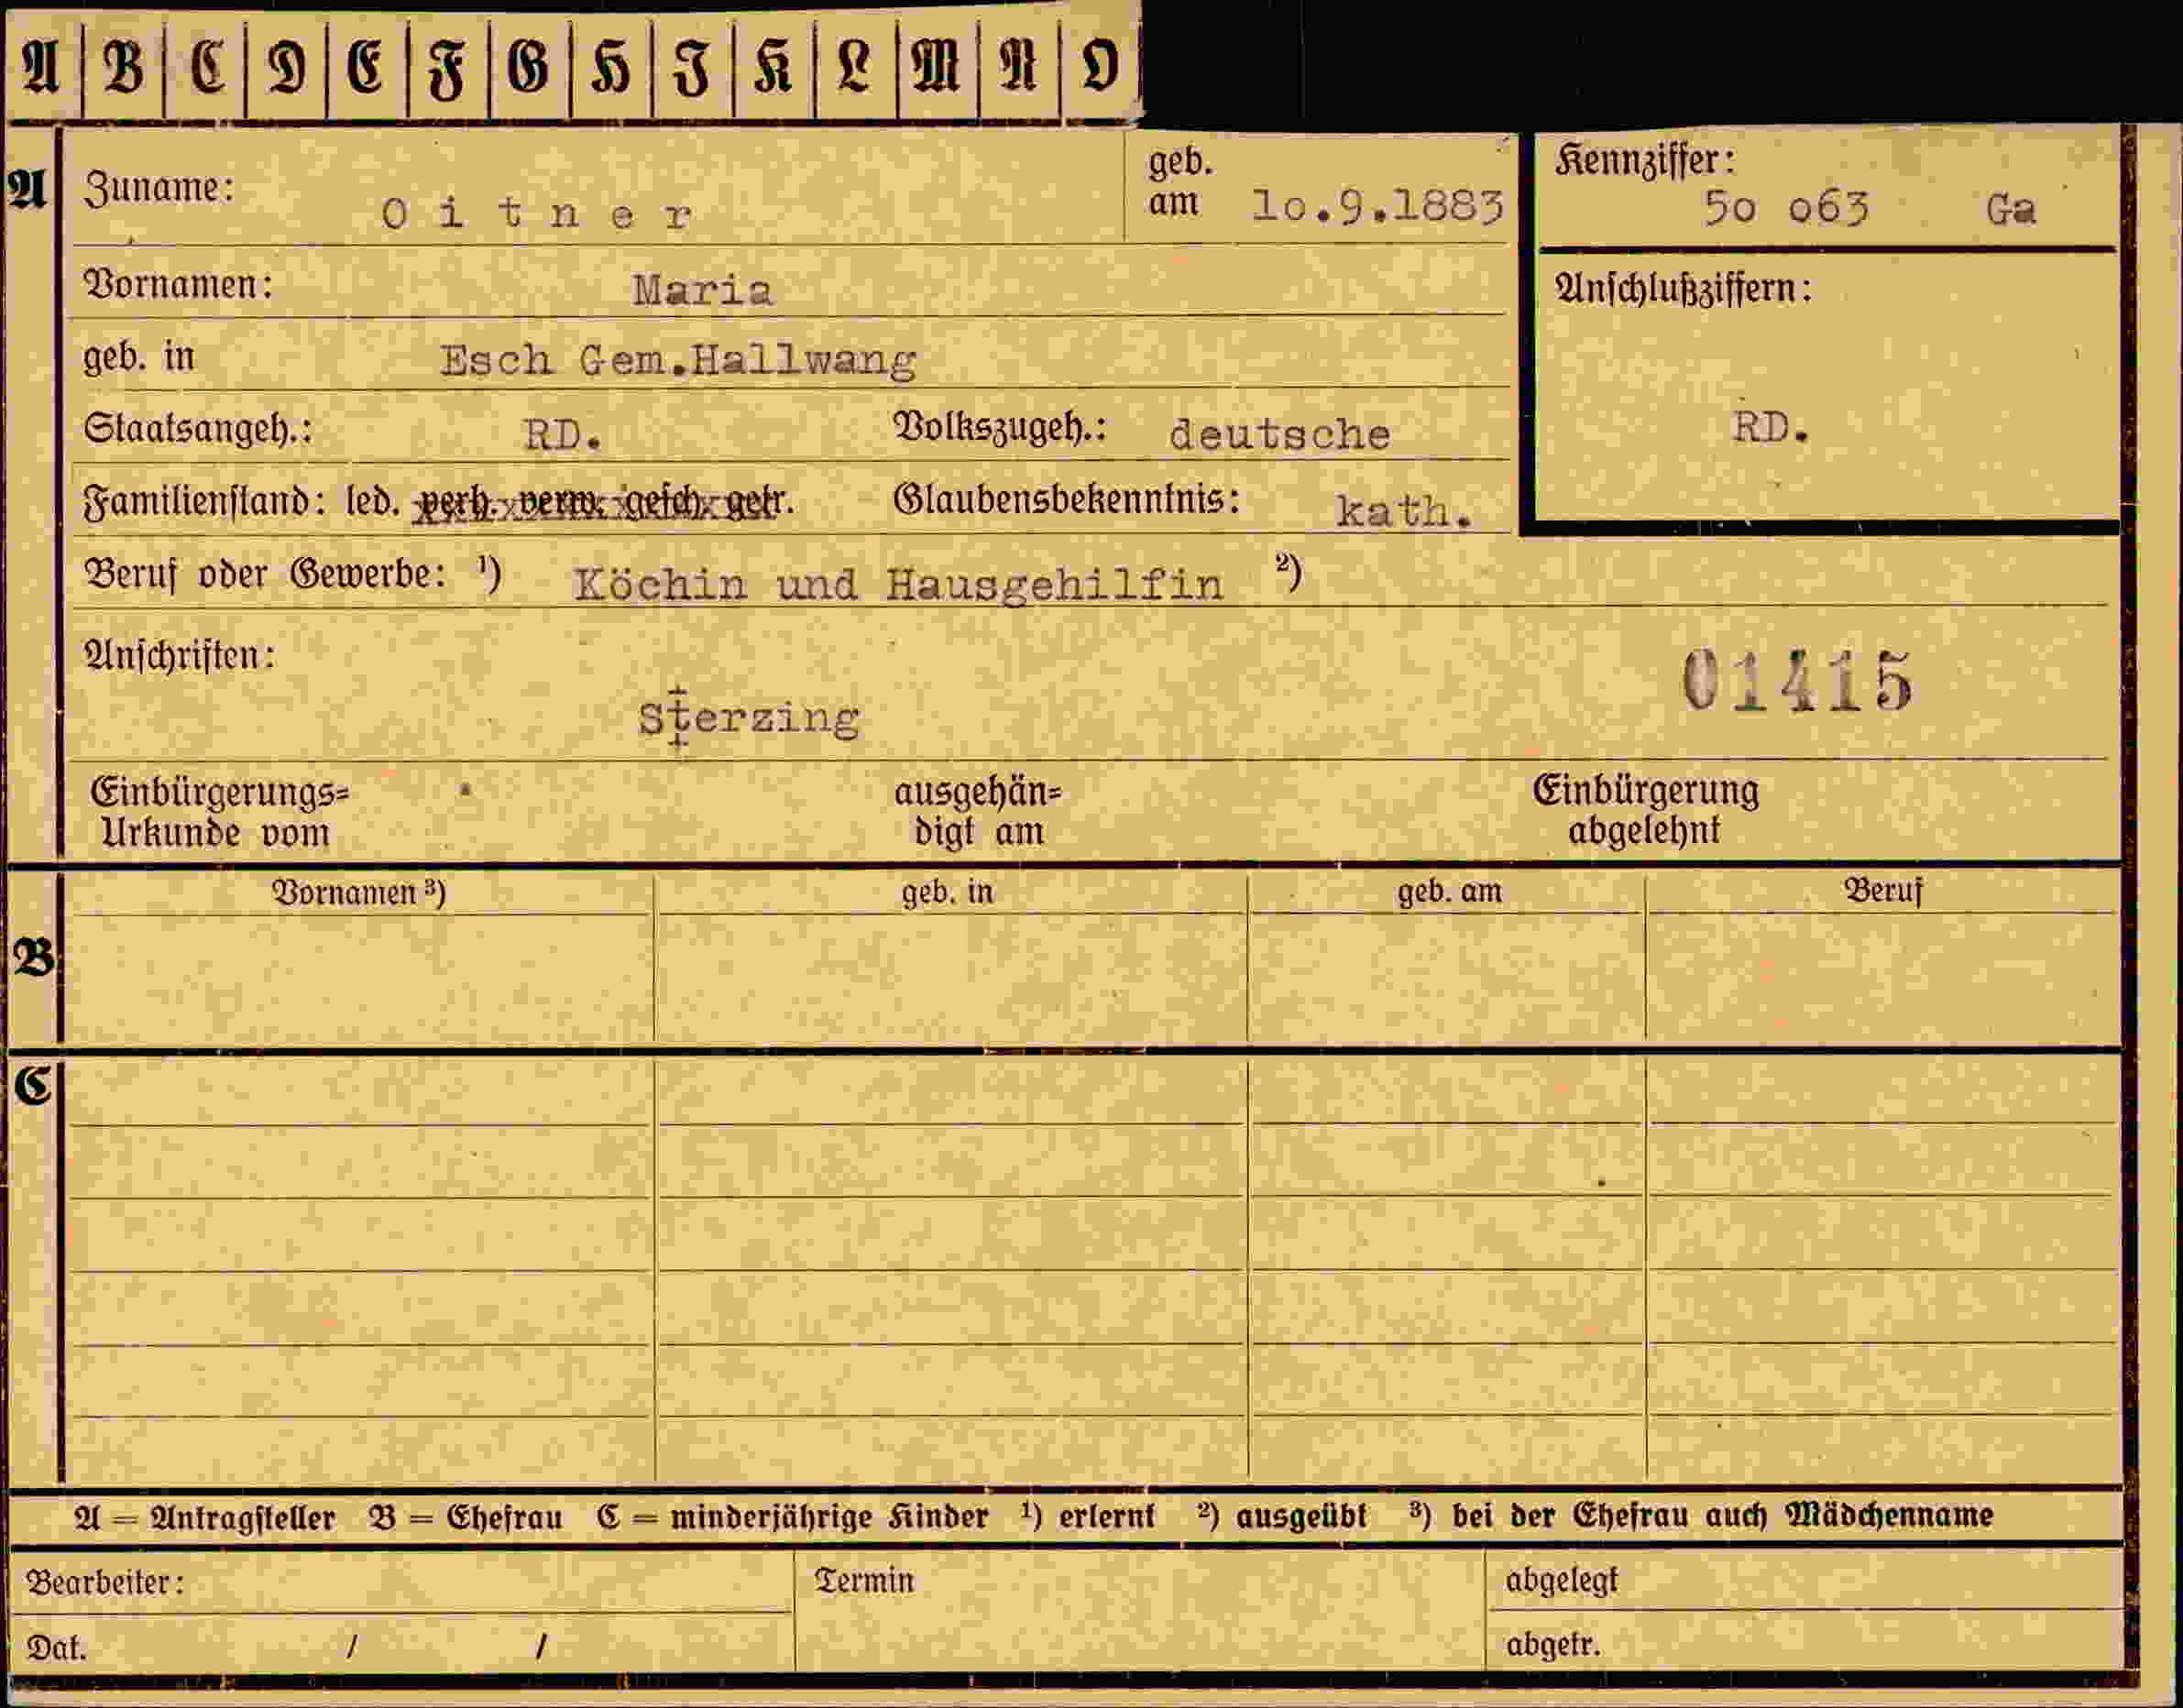 A B C D E F G H J K L M N O
A Zuname: Oitner geb. am 1o.9.1883
Kennziffer: 5o o63 Ga
Vornamen: Maria
Anschlußziffern:
geb. in Esch Gem.Hallwang
Staatsangeh.: RD. Volkszugeh.: deutsche
RD.
Familienstand: led. verh. verw. gesch. getr. Glaubensbekenntnis: kath.
Beruf oder Gewerbe: ¹) Köchin und Hausgehilfin ²)
Anschriften:
01415
Sterzing
Einbürgerungs= ausgehän= Einbürgerung
Urkunde vom digt am abgelehnt
Vornamen ³) geb. in geb. am Beruf
B
C
A = Antragsteller B = Ehefrau C = minderjährige Kinder ¹) erlernt ²) ausgeübt ³) bei der Ehefrau auch Mädchenname
Bearbeiter: Termin abgelegt
Dat. / / abgetr.